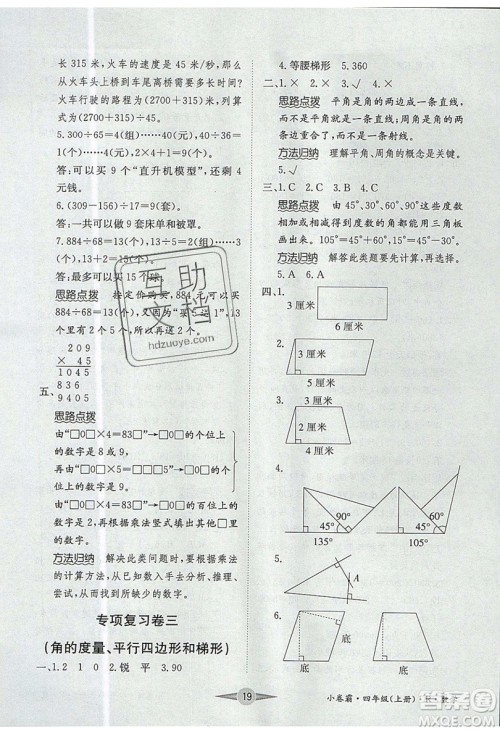 长 315 米,火车的速度是 45 米/秒,那么
从火车头上桥到车尾离桥需要多长时间?
火车行驶的路程为(2700+315)米,列算
式为(2700+315)÷45。
5.300÷65=4(组)……40(元),
40÷44=0(个)……40(元),2×4+1=9(个)
答:可以买 9 个“直升机模型”,还剩
4元钱。
6.(309-156)÷17=9(套)。
答:一共可以做 9 套床单和被罩。
7.884÷68=13(个),13÷5=2(组)……
答:最多可以买 15 个球。
思路点拨
884÷68=13(个)
2 0 9
× 4 5
1 0 4 5
8 3 6
9 4 0 5
五、
思路点拨
由“□0□×4=83□”→□0□的个位上
的数字是 8或 9;
再由“□0□×5=□□5”→□0□的个位
上的数字是 9。
由“□0□×4=83□”→□0□的百位上的
数字是 2。
方法归纳 解决此类问题时,要根据乘法
的计算方法,从已知数入手去分析、推理、
尝试,从而找出缺少的数字。
专项复习卷三
(角的度量、平行四边形和梯形)
一、1.2 1 0 2.锐 平 3.90
4.等腰梯形 5.360
二、1.× 2.√ 3.× 4.√
思路点拨 平角是角的两边成一条直线,
而不是一条直线。周角是角的两边重合成
一条射线,而不是一条射线。
方法归纳 理解平角、周角的概念是关键。
三、1.C 2.C 3.B 4.C
思路点拨 由 45°、30°、60°、90°的角
相加或相减得到度数的角都可以用三角板
画出来。105°=45°+60°。
方法归纳 解答此类题要先计算,再选择。
5.A 6.A
四、1.
3 厘米
6 厘米
2.
4厘米
3.
2厘米
4.
90°
45°
135°
60°
45°
120°
5.
A
6.
底
底
互助
文档
hdzuoye.com
19
小卷霸·四年级(上册)